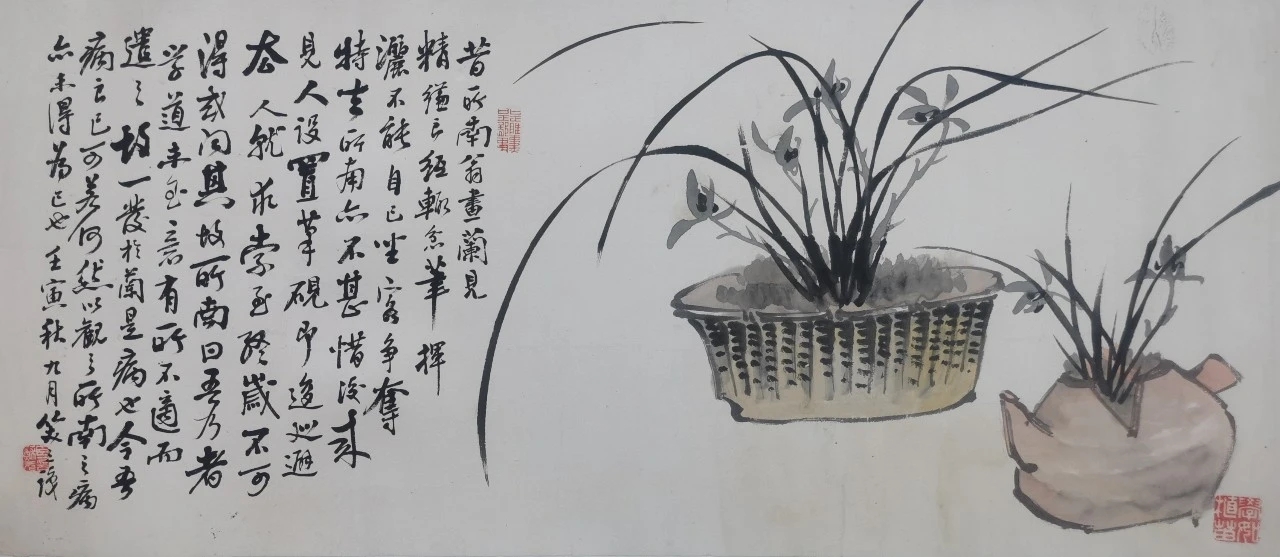 昔所南翁畫蘭見
精縑良紙輒忿筆揮
灑不能自已坐客爭奪
持去所南亦不甚惜後来
見人設置筆硯即逡巡避
去人就求索至終歲不可
得或问其故所南曰吾乃者
学道未至意有所不適而
遣之故一發於蘭是病也今吾
病良已可若何然以觀之所南之病
亦未得為已也壬寅秋九月